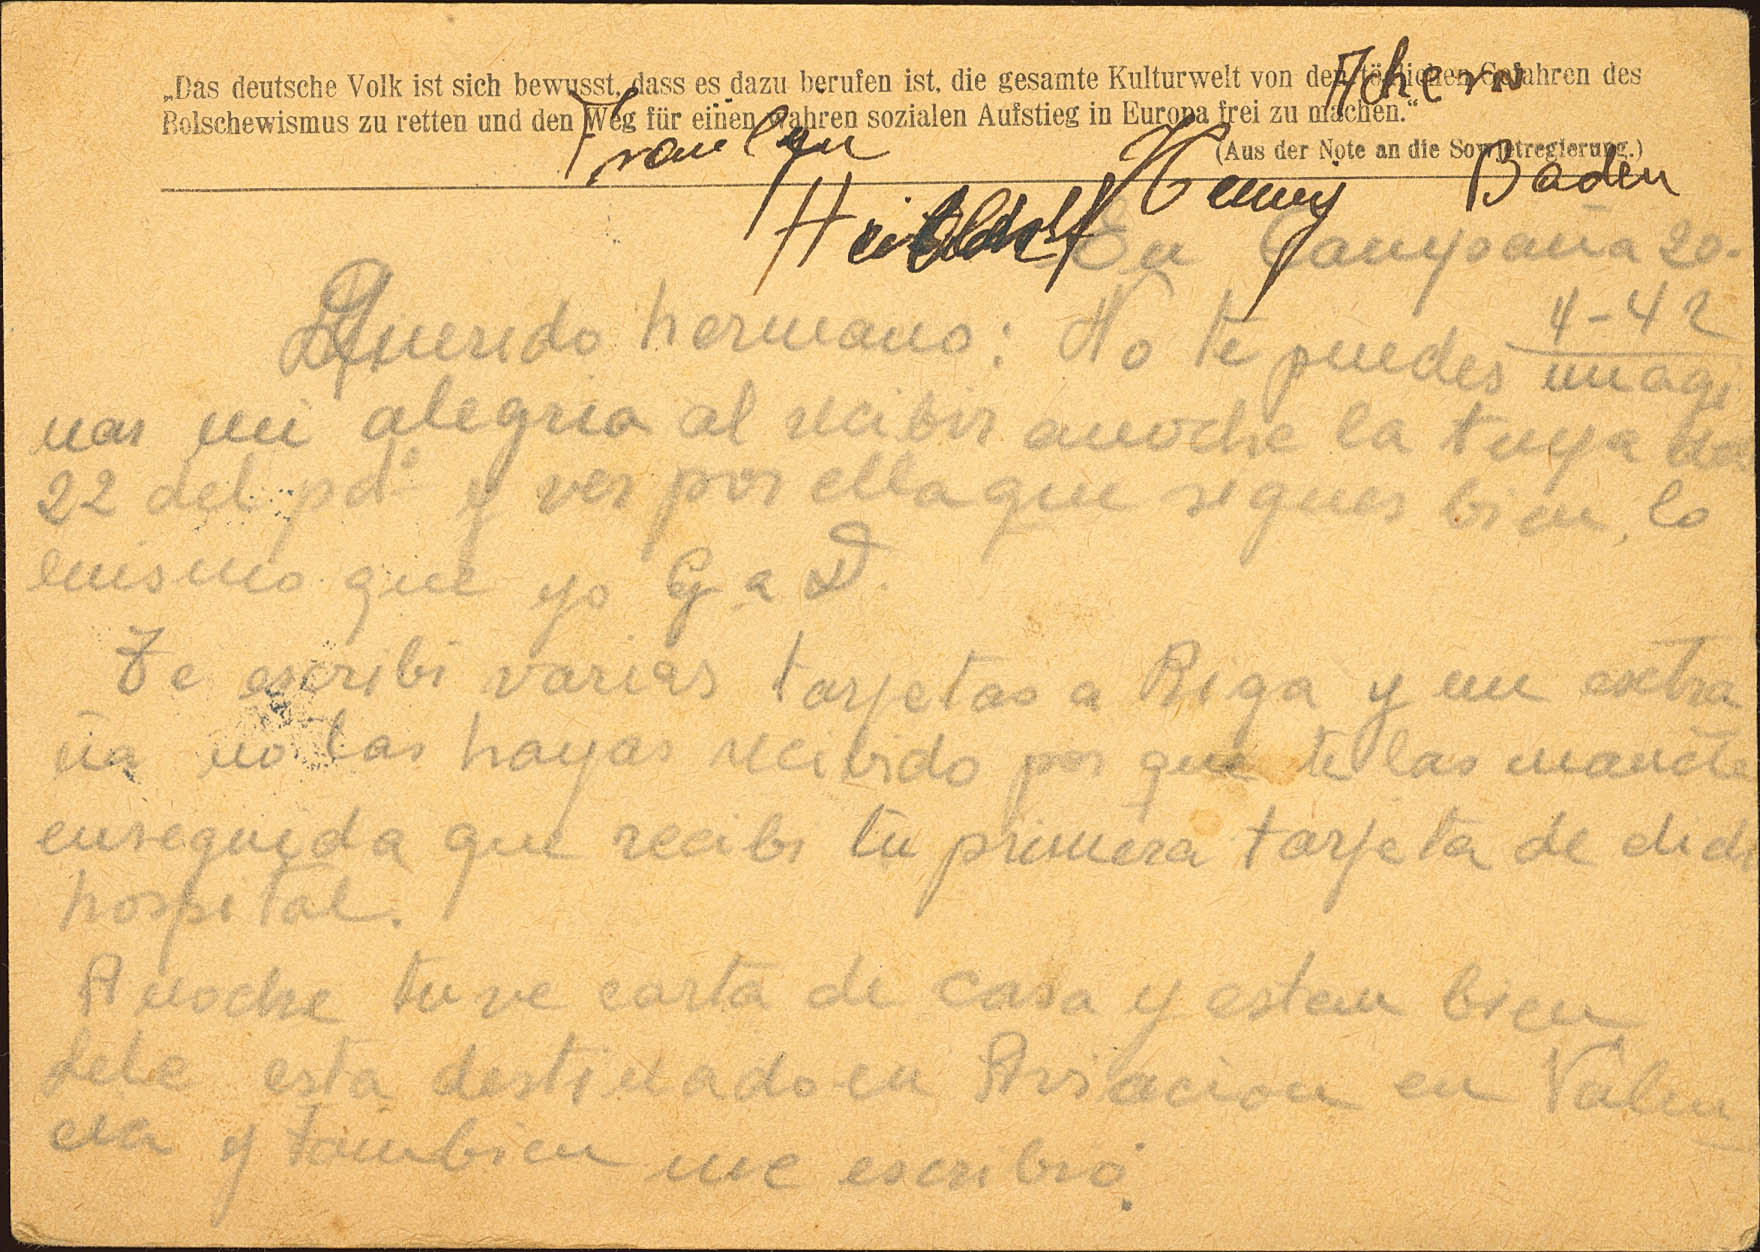 „Das deutsche Volk ist sich bewusst, dass es dazu berufen ist, die gesamte Kulturwelt von den tödlichen Gefahren des
Bolschewismus zu retten und den Weg für einen wahren sozialen Aufstieg in Europa frei zu machen.“
(Aus der Note an die Sowjetregierung.)
Achern
Fraulein
Henny
Baden
En Campaña 20-
4-42
Querido hermano: No te puedes imagi
nar mi alegria al recibir anoche la tuya del
22 del pdº y ver por ella que sigues bien, lo
mismo que yo G a D.
Te escribi varias tarjetas a Riga y me extra
ña no las hayas recibido por que te las mande
enseguida que recibi tu primera tarjeta de dicho
hospital.
Anoche tuve carta de casa y estan bien
Pepe esta destinado en Aviacion en Valen
cia y tambien me escribió.